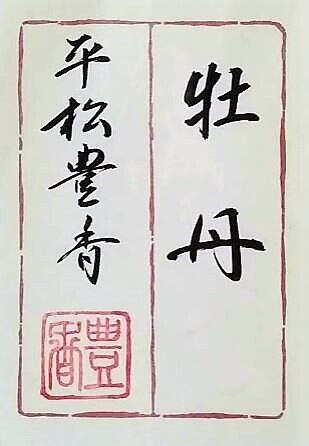 牡丹
平松豊香
豊香